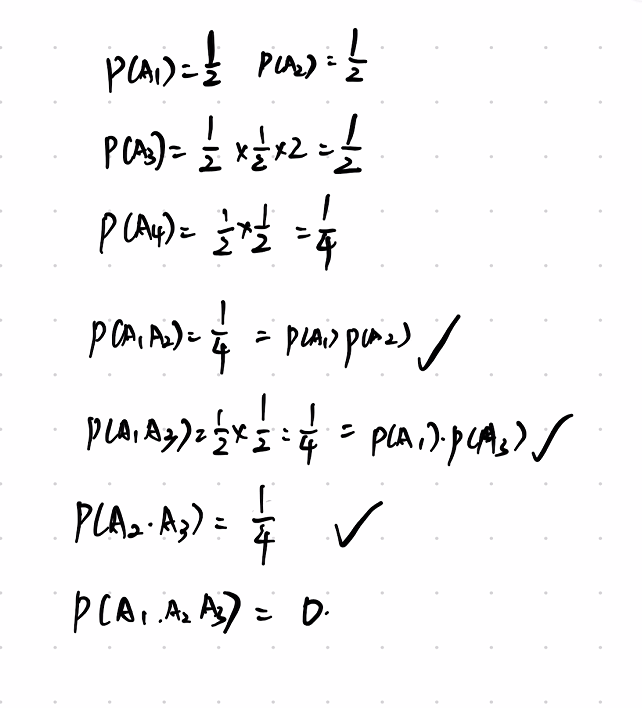 P(A₁)=1/2 P(A₂)=1/2
P(A₃)=1/2×1/2×2=1/2
P(A₄)=1/2×1/2=1/4
P(A₁A₂)=1/4=P(A₁)P(A₂)✓
P(A₁A₃)=1/2×1/2=1/4=P(A₁)·P(A₃)✓
P(A₂·A₃)=1/4 ✓
P(A₁.A₂A₃)=0.